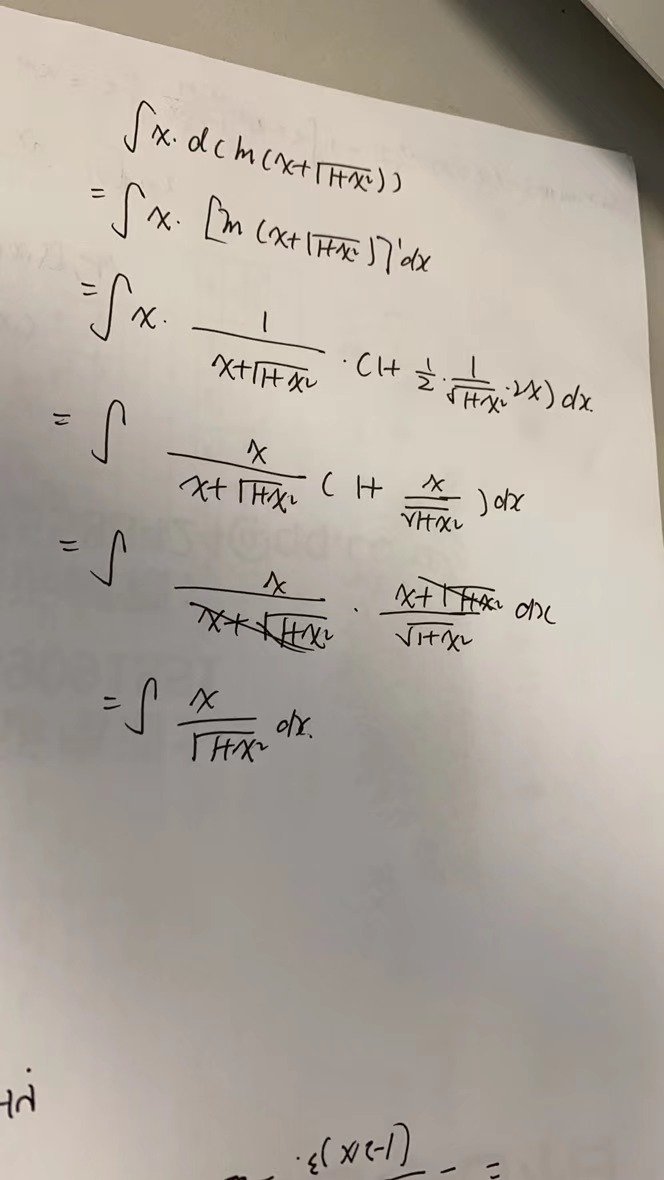 ∫ x · d( ln(x+√(1+x²)) )
= ∫ x · [ln (x+√(1+x²))]' dx
= ∫ x · 1/(x+√(1+x²)) · (1+ 1/2 · 1/√(1+x²) · 2x) dx.
= ∫ x/(x+√(1+x²)) (1+ x/√(1+x²)) dx
= ∫ x/(x+√(1+x²)) · (x+√(1+x²))/√(1+x²) dx
= ∫ x/√(1+x²) dx.